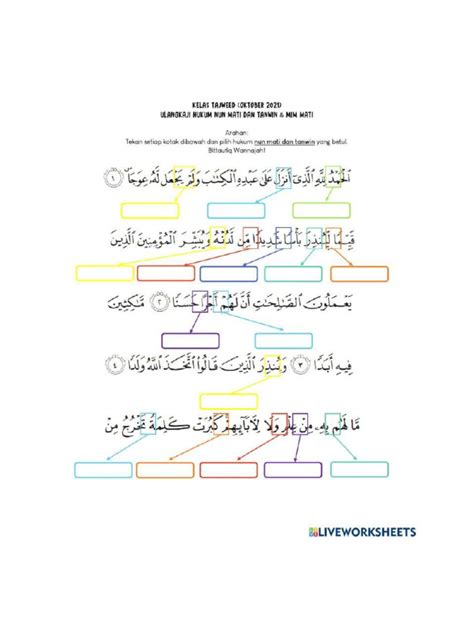 KELAS TAJWEED (OKTOBER 2021)
ULANGKAJI HUKUM NUN MATI DAN TANWIN & MIM MATI
Arahan:
Tekan setiap kotak dibawah dan pilih hukum nun mati dan tanwin yang betul.
Bittaufiq Wannajah!
ٱلْحَمْدُ لِلَّهِ ٱلَّذِىٓ أَنزَلَ عَلَىٰ عَبْدِهِ ٱلْكِتَـٰبَ وَلَمْ يَجْعَل لَّهُۥ عِوَجَا ۜ ١
قَيِّمًا لِّيُنذِرَ بَأْسًا شَدِيدًا مِّن لَّدُنْهُ وَيُبَشِّرَ ٱلْمُؤْمِنِينَ ٱلَّذِينَ
يَعْمَلُونَ ٱلصَّـٰلِحَـٰتِ أَنَّ لَهُمْ أَجْرًا حَسَنًا ٢ مَّـٰكِثِينَ
فِيهِ أَبَدًا ٣ وَيُنذِرَ ٱلَّذِينَ قَالُوا۟ ٱتَّخَذَ ٱللَّهُ وَلَدًا ٤
مَّا لَهُم بِهِۦ مِنْ عِلْمٍ وَلَا لِـَٔابَآئِهِمْ كَبُرَتْ كَلِمَةً تَخْرُجُ مِنْ
LIVEWORKSHEETS